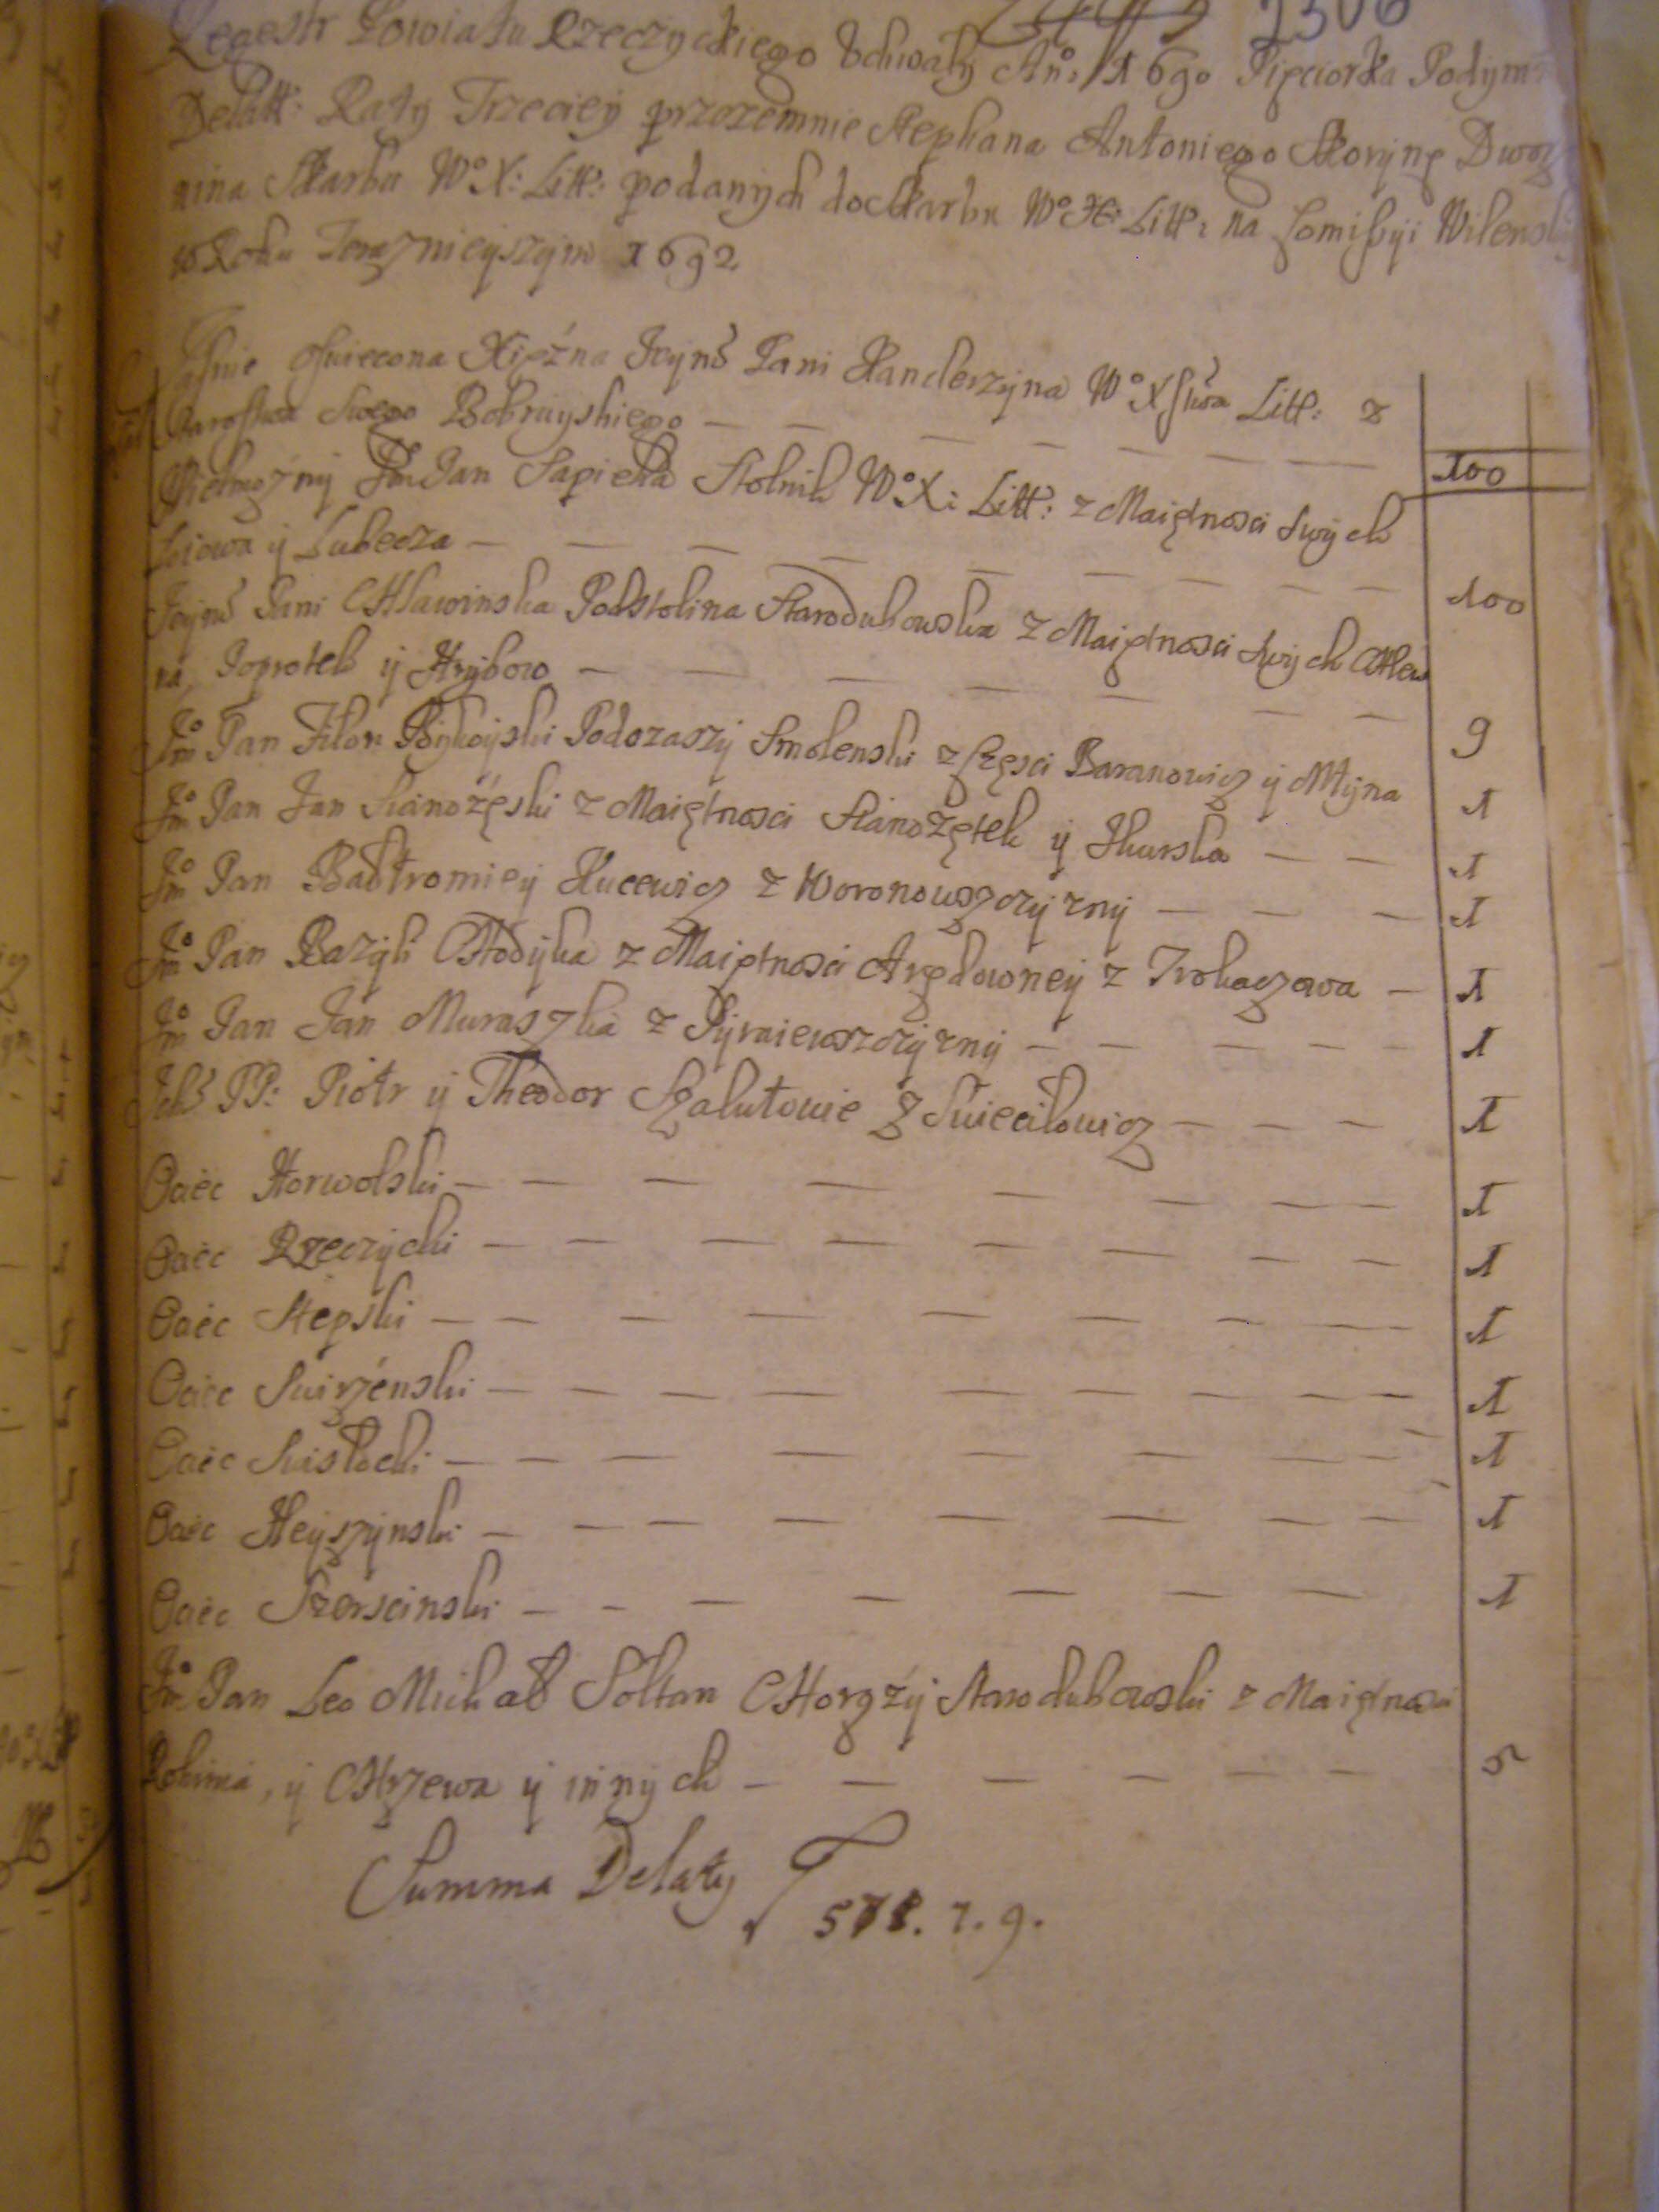 2306
Regestr Powiatu Rzeczyckiego Uchwały An̊: 1690 Pięciorka Podym
Delatt: Raty Trzeciey przezemnie Stephana Antoniego Skorynę Dworz
nina Skarbu W° X: Litt: podanych do Skarbu W° X: Litt: na Comissyi Wilensk
w Roku Teraznieyszym 1692
Jasnie Oswiecona Xięźna Jeymść Pani Kanclerzyna W° X stwa Litt: z
Starostwa Swego Bobruyskiego — — — — — — — 100
Wielmożny Jm̊ Jan Sapieha Stolnik W° X: Litt: z Maiętnosci Swych
Łoiowa y Lubecza — — — — — — — — 100
Jeymść Pani Chlewinska Podstolina Starodubowska z Maiętnosci Swych Chlew
na, Poprotek y Hrybow — — — — — — — 9
Jm̊ Pan Filon Podczaszy Smolenski z Częsci Baranowicz y Młyna 1
Jm̊ Pan Jan Scianożęcki z Maiętnosci Scianożętek y — — 1
Jm̊ Pan Bałtromiey Kucewicz z Woronowszczyzny — — — 1
Jm̊ Pan Bazyli Chodyka z Maiętnosci Arędowney z Trokaczewa — 1
Jm̊ Pan Jan Muraszka z — — — — — 1
Ichść PP: Piotr y Theodor Szalutowie z Swieciłowicz — — — 1
Ociec Horwolski — — — — — — — — 1
Ociec Rzeczycki — — — — — — — — 1
Ociec Stepski — — — — — — — — 1
Ociec Swirżenski — — — — — — — — — 1
Ociec Swisłocki — — — — — — — — 1
Ociec Heyszynski — — — — — — — — 1
Ociec Szerscinski — — — — — — — 1
Jm̊ Pan Leo Michał Sołtan Chorąży Starodubowski z Maiętnosci
y Chrzewa y innych — — — — — — 5
Summa Delaty 578. 7. 9.